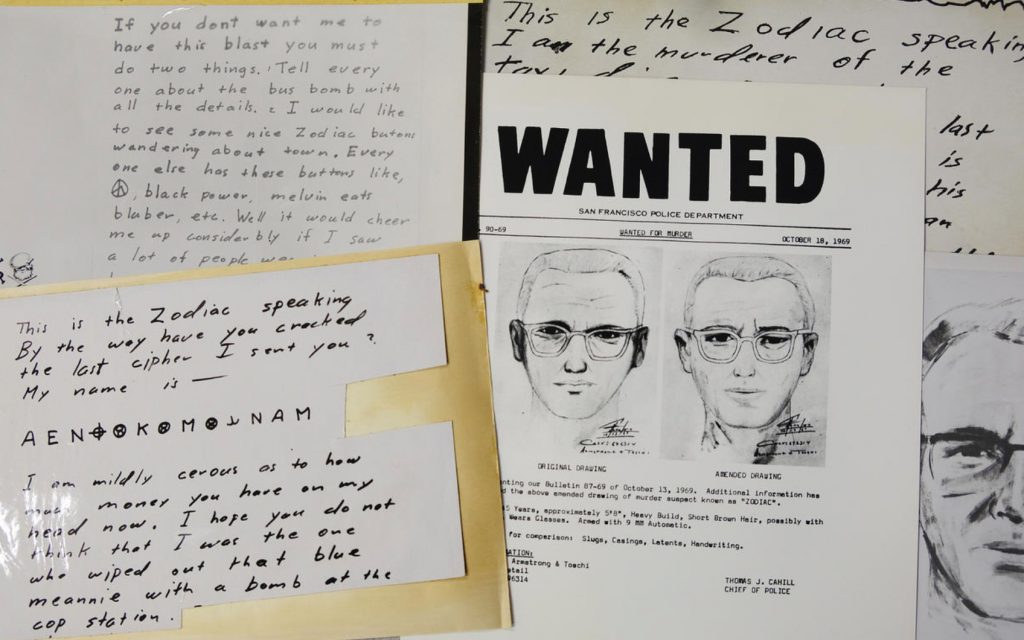 If you dont want me to
have this blast you must
do two things. Tell every
one about the bus bomb with
all the details. 2 I would like
to see some nice Zodiac butons
wandering about town. Every
one else has these buttons like,
, black power, melvin eats
bluber, etc. Well it would cheer
me up considerbly if I saw
a lot of people
This is the Zodiac speaking
I am the murderer of the
last
is
his
an
This is the Zodiac speaking
By the way have you cracked
the last cipher I sent you?
My name is —
A E N ⌖ ⊗ K ⊗ M ⊗ ⅄ N A M
I am mildly cerous as to how
much money you have on my
head now. I hope you do not
think that I was the one
who wiped out that blue
meannie with a bomb at the
cop station.
WANTED
SAN FRANCISCO POLICE DEPARTMENT
90-69 WANTED FOR MURDER OCTOBER 18, 1969
ORIGINAL DRAWING AMENDED DRAWING
our Bulletin 87-69 of October 13, 1969. Additional information has
the above amended drawing of murder suspect known as "ZODIAC".
Years, approximately 5'8", Heavy Build, Short Brown Hair, possibly with
Wears Glasses. Armed with 9 MM Automatic.
for comparison: Slugs, Casings, Latents, Handwriting.
Armstrong & Toschi
THOMAS J. CAHILL
CHIEF OF POLICE